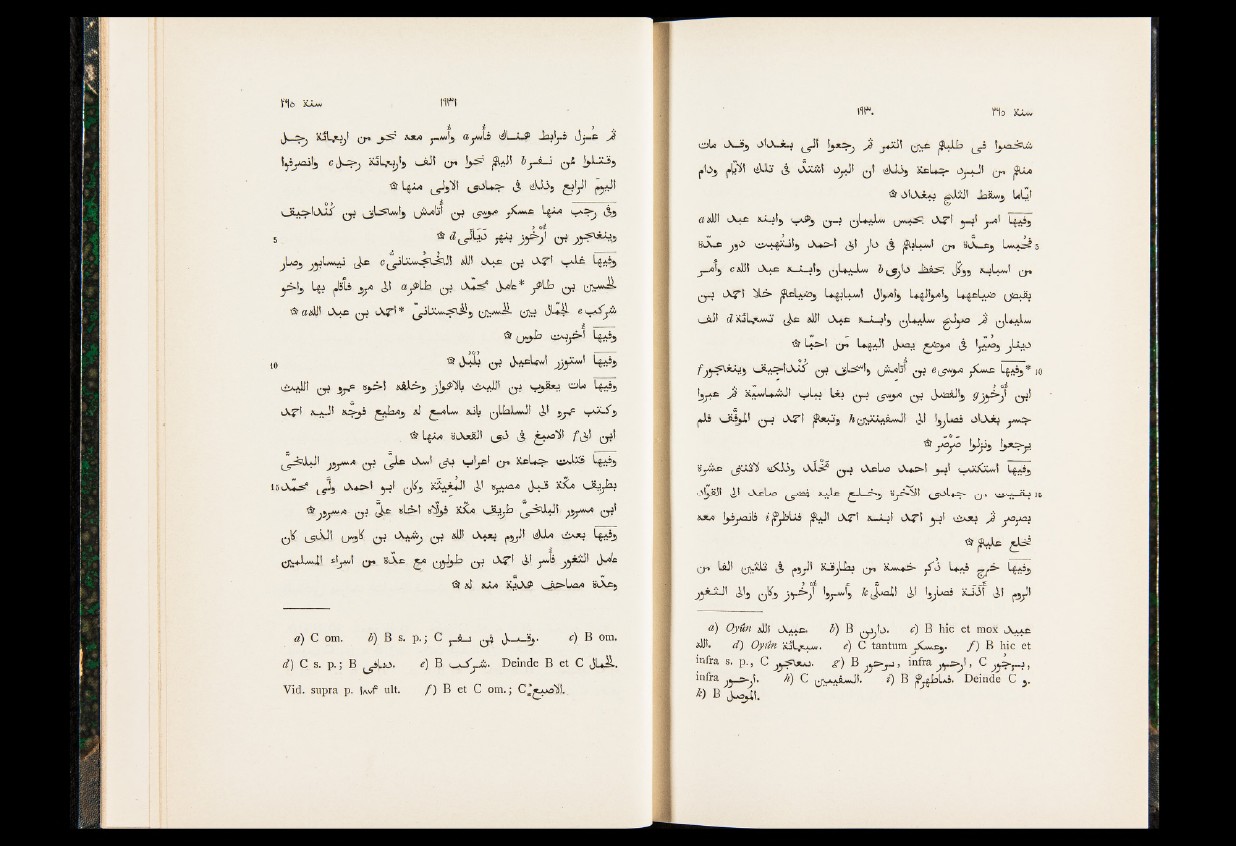 ١٩٣٠ سنة ٢٦٥
شخصوا فى طلبهم عين التمر ثم رجعوا الى بغداد وقد مات
منهم من البرد جماعة وذلك ان البرد اشتدّ فى تلك الأيّام ودام
ايّاما وسقط الثلج ببغداد ۞
وفيها امر ابو احمد بحبس سليمان بن وهب وابنه عبد الله a
5 فحُبسا وعدّة من اسبابهم فى دار لأبى احمد وانتُهبت دور عدّة
من اسبابه ووُكّل بحفظ دارى b سليمان وابنه عبد الله c وأمر
بقبض ضياعهما واموالهما واموال اسبابهما وضياعهم خلا احمد بن
سليمان ثم صولح سليمان وابنه عبد الله على تسعمائة d الف
دينار وصُيّرا فى موضع يصل اليهما مَن احبّا ۞
10 *وفيها عسكر موسى e بن أُتامش واسحاق بن كُنْداجيق وينغجور f
ابن أُرْخُوز g والفضل بن موسى بن بغا بباب الشماسيّة ثم عبروا
جسر بغداد فصاروا الى السفينتين h وتبعهم احمد بن الموفّق فلم
يرجعوا ونزلوا صَرْصَر ۞
وفيها استكتب ابو احمد صاعد بن مَخْلَد وذلك لاثنتى عشرة
15 بقيت من جمادى الآخرة وخلع عليه فمضى صاعد الى القوّاد
بصرصر ثم بعث ابو احمد ابنه احمد اليهم فناظرهم i فانصرفوا معه
فخلع عليهم ۞
وفيها خرج فيما ذُكر خمسة من بطارقة الروم فى ثلثين الفا من
الروم الى أَذَنَة فصاروا الى المصلّى k وأسروا أُرْخُوز وكان والى الثغور
a) Oyûn عبيد الله. b) B دارين. c) B hic et mox عبيد
الله. d) Oyûn سبعمائة. e) C tantum وعسكر. f) B hic et
infra s. p., C g) B infra C
infra ارخور. h) C السفينين. i) B فناظرهم. Deinde C و.
k) B الموصل.
سنة ٢٦٥ ١٩٣١
ثم عُزل فرابط هناك فأُسر a وأُسر معه نحو من اربعمائة رجل
وقتلوا ممّن نفر b اليهم نحوا من الف واربعمائة رجل c وانصرفوا
اليوم الرابع وذلك فى جمادى الأولى منها ۞
وفى رجب منها عسكر موسى بن أُتامش واسحاق بن كُنْداجيق
5 وينغجور بن أُرْخُوز بنهر دَيَالَى d ۞
وفيها غلب احمد بن عبد الله الخُجُستانىّ c على نيسابور وصار
الحسين بن طاهر *عامل محمّد بن طاهر a الى مرو فأقام بها واخو
شركب e الجمّال بين الحسين والخجستانىّ *احمد بن عبد الله a ۞
وفيها أُخربت طوس ۞
10 وفيها استوزر اسماعيل بن بُلْبُل ۞
وفيها مات يعقوب بن الليث بالأهواز وخلفه اخوه عمرو بن الليث
وكتب عمرو الى السلطان بأنه سامع له ومطيع فوجّه اليه احمد
ابن ابى f الأصبغ فى ذى القعدة منها ۞
وفيها قتلت جماعة من اعراب بنى اسد علىّ بن مسرور البلخىّ
15 بطريق مكّة قبل مصيره الى المُغيثة وكان ابو احمد ولّى محمّد
ابن مسرور البلخىّ طريق مكّة فولّاه اخاه علىّ بن مسرور ۞
وفيها بعث ملك الروم بعبد الله بن رشيد بن كاوس الذى كان
عامل الثغور فأُسر الى احمد بن طولون مع عدّة من اسراء المسلمين
وعدّة مصاحف هديّة منه له ۞
a) C om. b) B s. p.; C وقتل فى نفر. c) B om.
d) C s. p.; B e) B شركب. Deinde B et C الحمال.
Vid. supra p. ١٨٨٣ ult. f) B et C om.; C الاصبع.